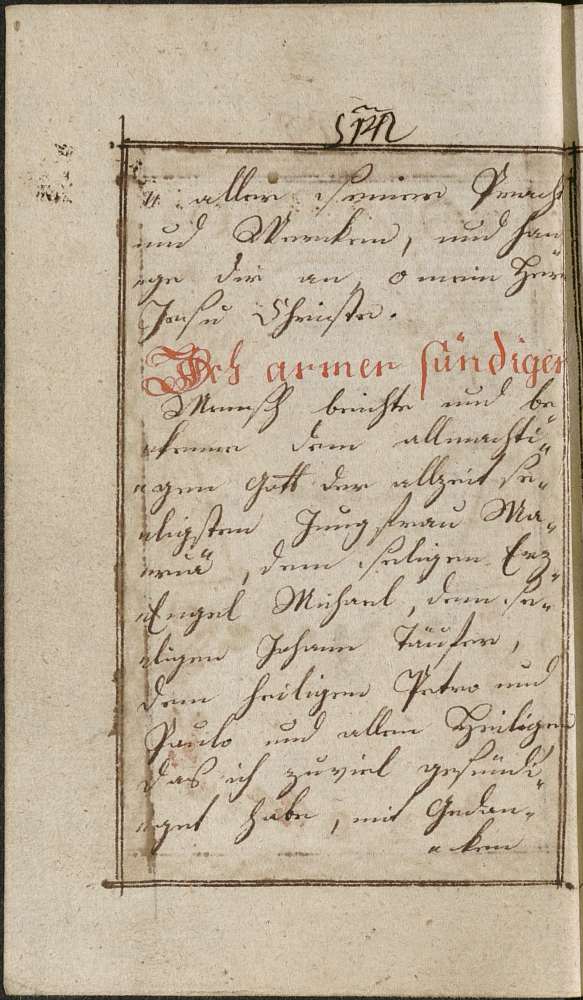 u: aller seiner Pracht
und Wercken, und han
ge dir an, o mein Herr
Jesu Christe.
Ich armer sündiger
Mensch beichte und be
kenne dem allmächti„
„gen Gott der allzeit se„
„ligsten Jungfrau Ma„
„riä, dem seligen Erz„
„Engel Michael, dem se„
„ligen Johann Täufer,
dem heiligen Petro und
Paulo und allen Heiligen
das ich zuviel gesündi„
„get habe, mit Gedan„
„ken